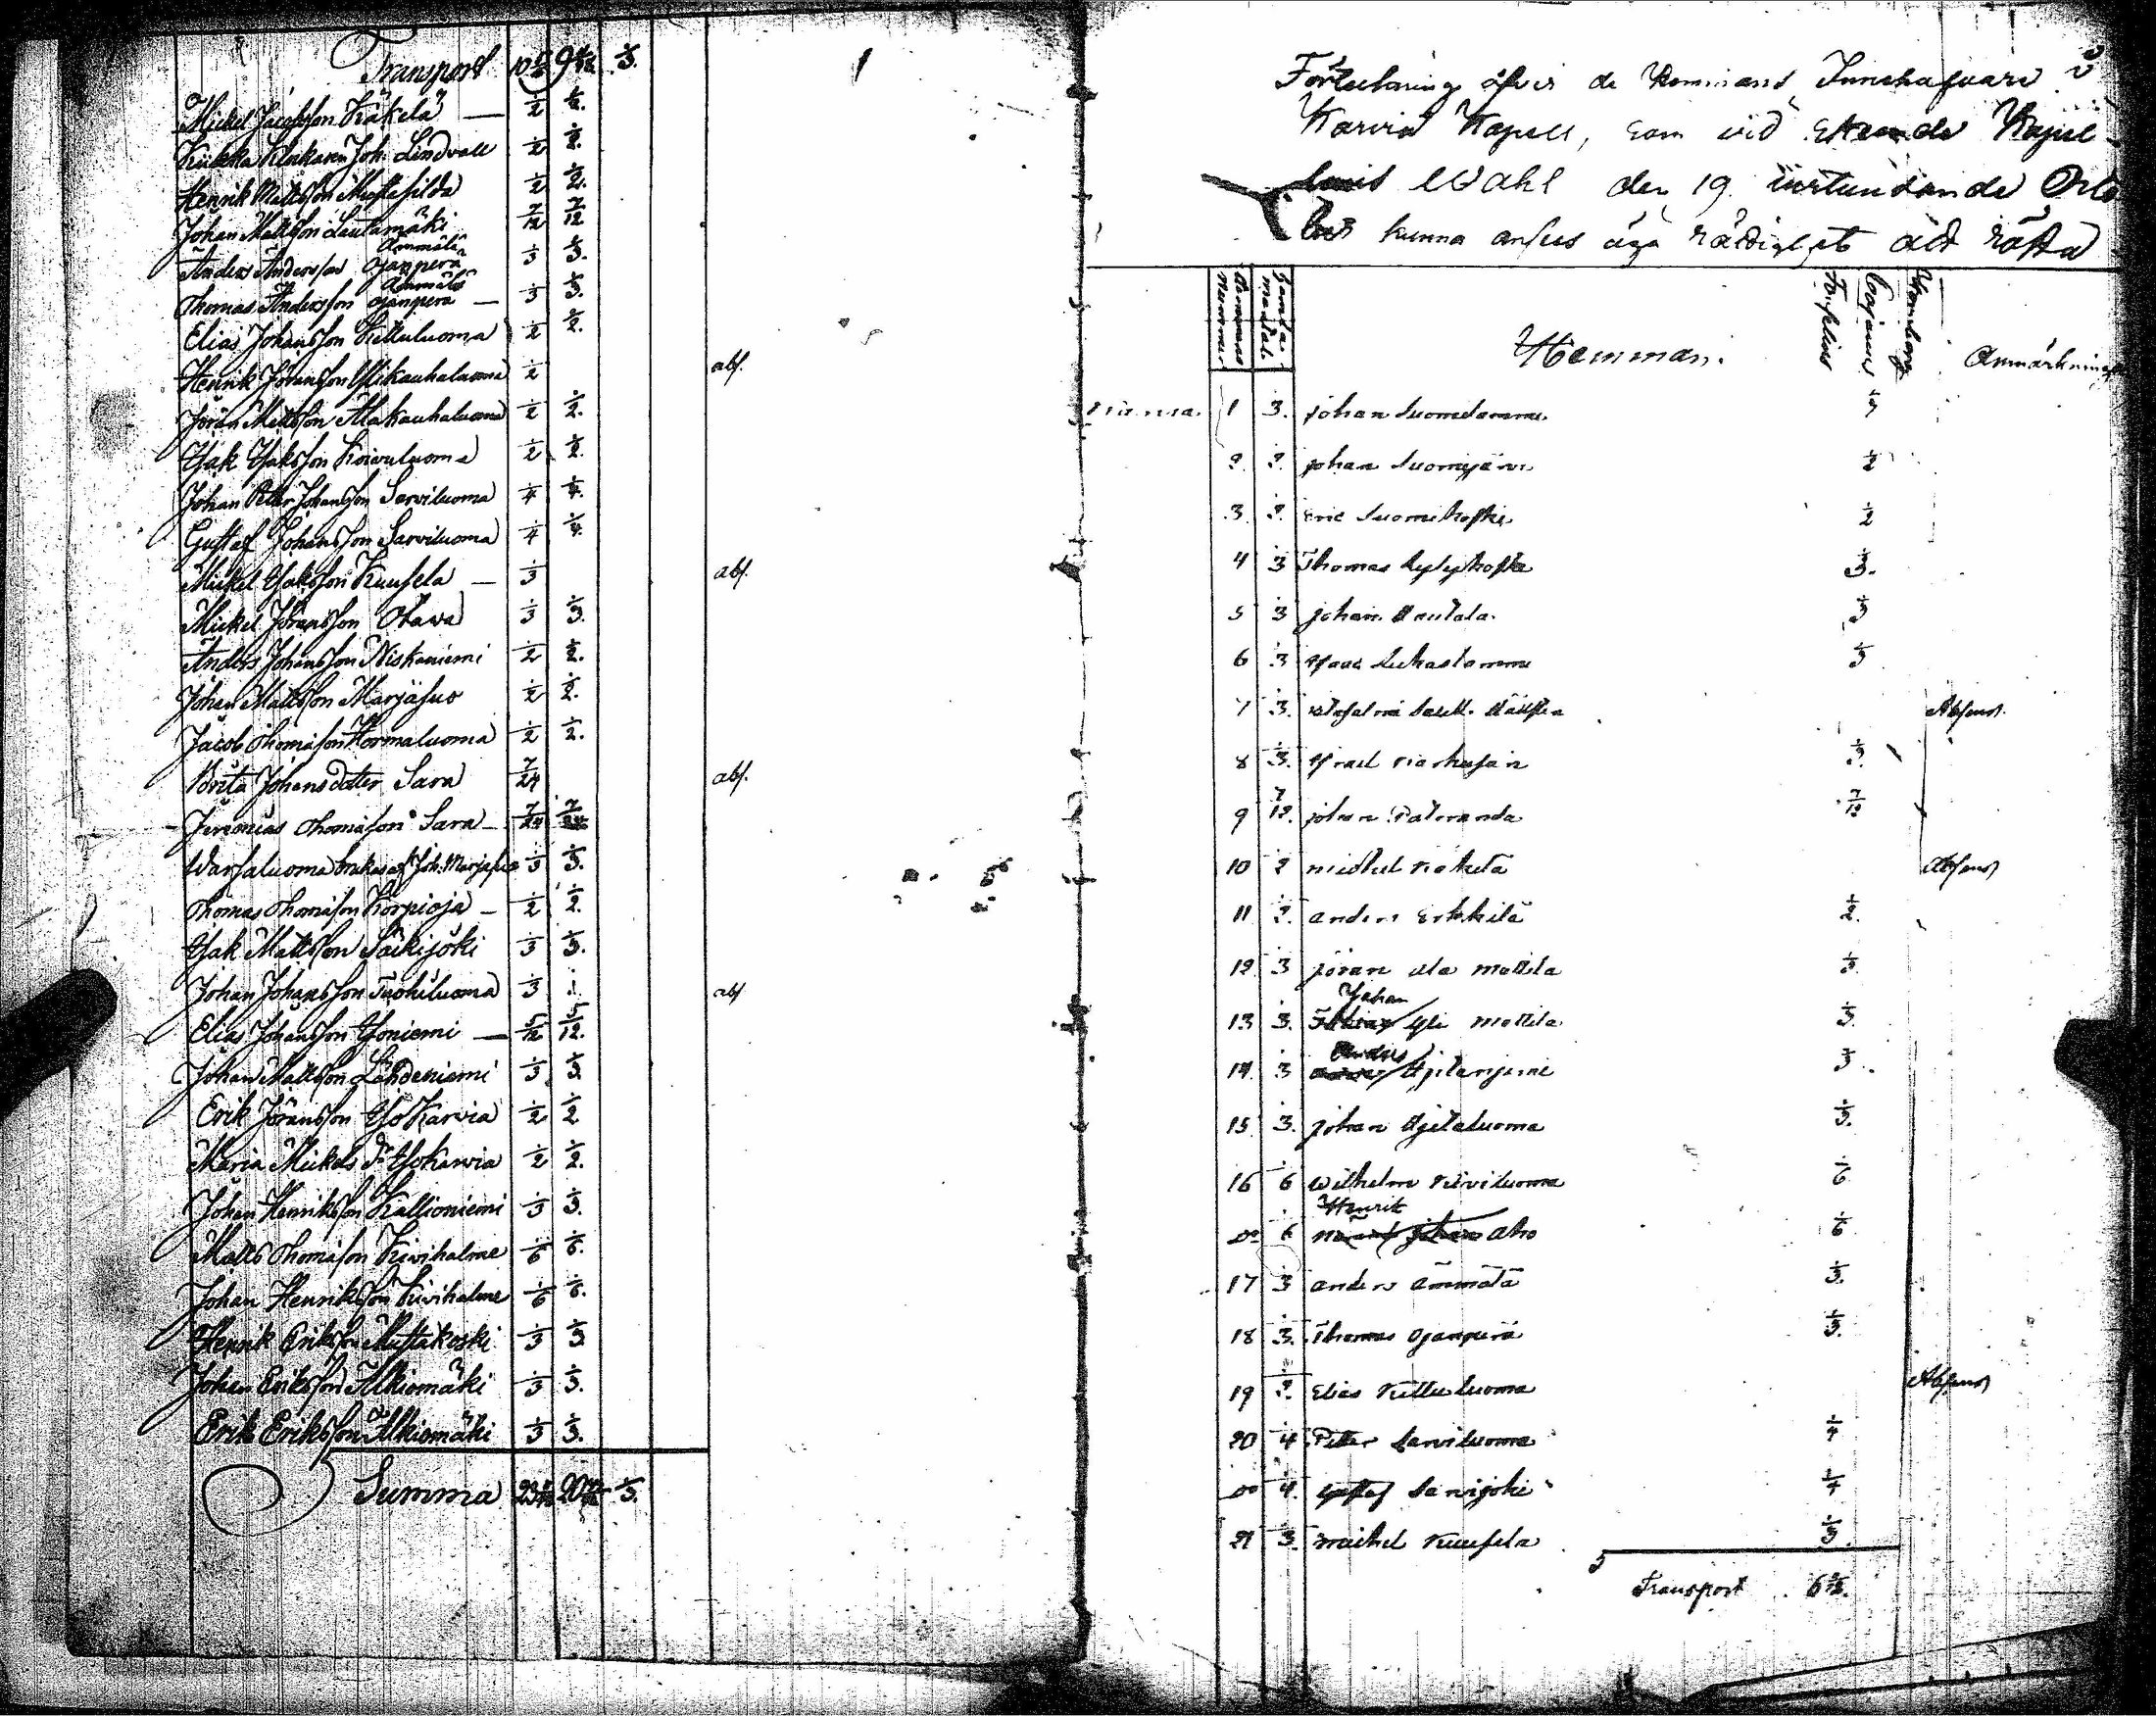 Transport 10 9 1/3.
Mickel Jacobsson Käkelä — 1/2 1/2.
Kiikka Klockaren Joh. Lindvall 1/2 1/2.
Henrik Mattsson Mustasilda 1/2 1/2.
Johan Mattsson Lautamäki 7/12 7/12
Ämmälä
Anders Andersson Ojanperä 1/3 1/3.
Ämmälä
Thomas Andersson Ojanperä — 1/3 1/3.
Elias Johansson Kettuluoma 1/2 1/2.
Henrik Johansson Ylikauhaluoma 1/2 abs.
Jöran Mattsson Alakauhaluoma 1/2 1/2.
Isak Isaksson Koivuluoma 1/2 1/2.
Johan Petter Johansson Sarviluoma 1/4 1/4.
Gustaf Johansson Sarviluoma 1/4 1/4.
Mickel Isaksson Kuusela — 1/3 abs.
Mickel Jöransson Otawa 1/3 1/3.
Anders Johansson Niskaniemi 1/2 1/2.
Johan Mattsson Marjasuo 1/2 1/2.
Jacob Thomasson Hormaluoma 1/2 1/2.
Brita Johansdotter Sara 7/24 abs.
Jeremias Thomasson Sara — 7/24 7/24
Warsaluoma brukas af Joh. Marjasuo 1/3 1/3.
Thomas Thomasson Korpioja — 1/2 1/2.
Isak Mattsson Säikijoki 1/3 1/3.
Johan Johansson Tuohiluoma 1/3 abs.
Elias Johansson Isoniemi — 5/12 5/12.
Johan Mattsson Lähdeniemi 1/3 1/3.
Erik Jöransson Iso Karvia 1/2 1/2
Maria Mickels Dr Isokarvia 1/2 1/2.
Johan Henriksson Kallioniemi 1/3 1/3.
Matts Thomasson Kivihalme 1/6 1/6.
Johan Henriksson Kivihalme 1/6 1/6.
Henrik Eriksson Mustakoski 1/3 1/3
Johan Eriksson Alkiomäki 1/3 1/3.
Erik Eriksson Alkiomäki 1/3 1/3.
Summa 23 20 1/3.
Förteckning öfver de Hemmans Innehafvare i
Karvia Kapell, som vid skeende Kapel-
lans Wahl den 19 instundande Octo
ber kunna anses äga rättighet att rösta
Hemmans Nummer
Gamla mantal.
Hemman.
Forselius
Cajanus
Anmärkningar
1 1/3. johan Suomelammi 1/3
2. 1/2. johan Suomijärvi 1/2
3. 1/2. Eric Suomikoski 1/2
4 1/3 Thomas Kyly Koski 1/3.
5 1/3 johan Rautala. 1/3
6 1/3 Isaac Luhaslammi 1/3
7 1/3. Absent.
8 1/3. Israel 1/3.
9 7/12. johan 7/12
10 1/2 michel Käkelä Absent
11 1/2. anders Erkkilä 1/2.
12 1/3 jöran Ala Mattila 1/3
Johan
13 1/3. Yli Mattila 1/3.
Anders
14. 1/3 1/3.
15. 1/3. johan 1/3.
16 1/6 Wilhelm Kiviluoma 1/6
Henrik
do 1/6 Aho 1/6
17 1/3 anders Ämmälä 1/3.
18 1/3. Thomas Ojanperä 1/3.
19 1/2. Elias Kettuluoma Absent
20 1/4 Petter Sarviluoma 1/4
do 1/4. Gustaf Sarvijoki 1/4
21 1/3. michel Kuusela 1/3.
Transport 6